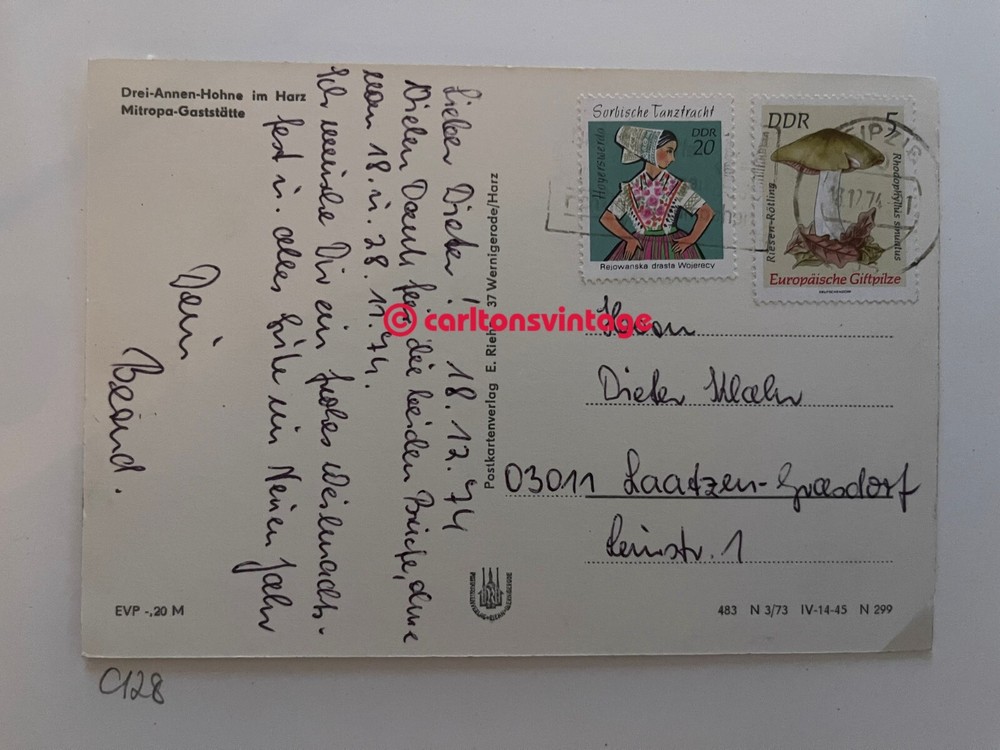 Drei-Annen-Hohne im Harz
Mitropa-Gaststätte
Lieber Dieter! 18.12.74
Vielen Dank für die beiden Briefe,
vom 18. u. 28.11.74.
Ich wünsche Dir ein frohes Weihnachts-
fest u. alles Gute im Neuen Jahr
Dein
Bernd.
EVP -,20 M
Postkartenverlag E. Rieh 37 Wernigerode/Harz
Sorbische Tanztracht
Hoyerswerda
DDR
20
Rejowanska drasta Wojerecy
DDR 5
Riesen-Rötling
Rhodophyllus sinuatus
Europäische Giftpilze
LEIPZIG
18.12.74
© carltonsvintage
Herrn
Dieter Klahr
03011 Laatzen-Grasdorf
Leinstr. 1
483 N 3/73 IV-14-45 N 299
C128